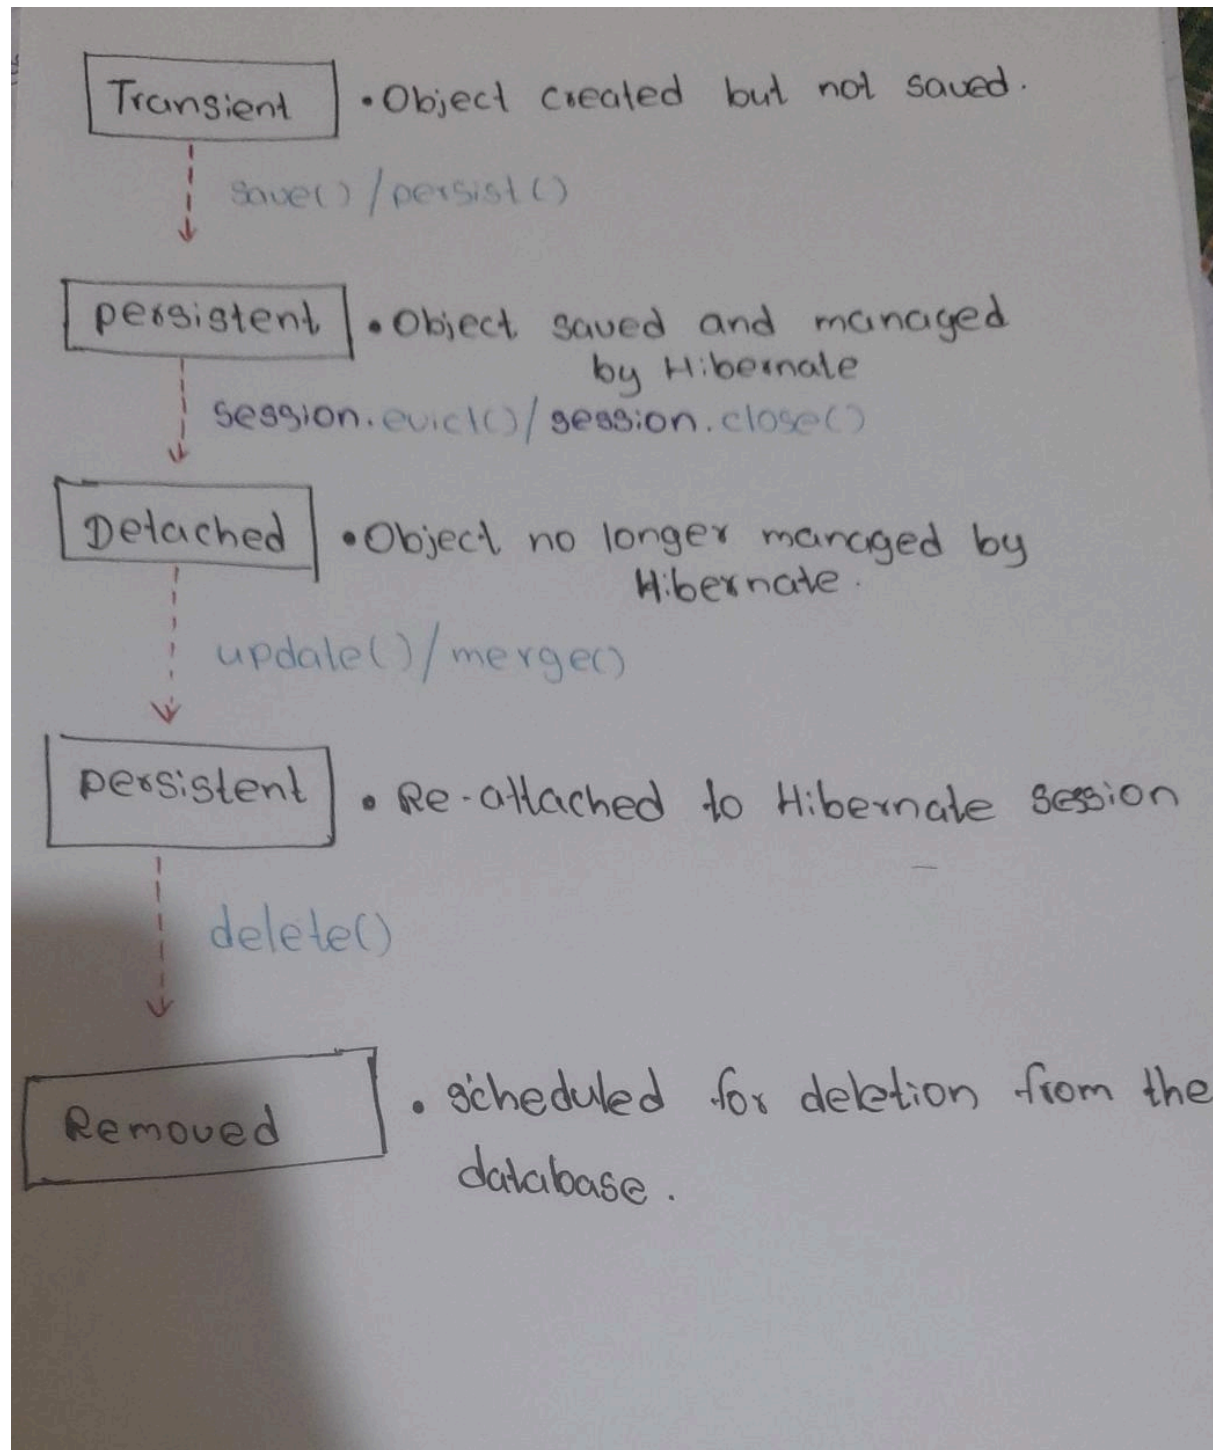 Transient • Object created but not saved.
save() / persist()
persistent • Object saved and managed
by Hibernate
session.evict() / session.close()
Detached • Object no longer managed by
Hibernate.
update() / merge()
persistent • Re-attached to Hibernate session
delete()
Removed • scheduled for deletion from the
database.